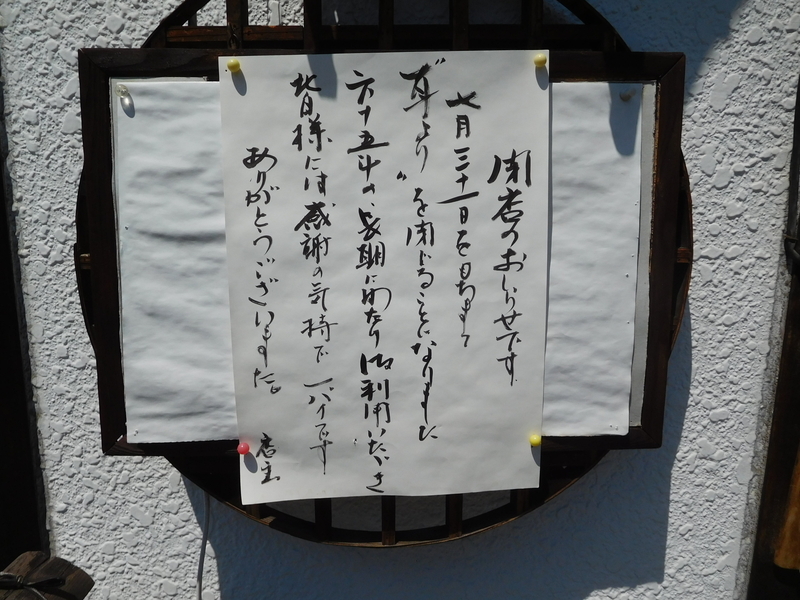 閉店のおしらせです
七月三十一日をもちまして
〝耳より〟を閉じることになりました
六十五年の、長期にわたり御利用いただき
皆様には感謝の気持で一パイです
ありがとうございました。
店主